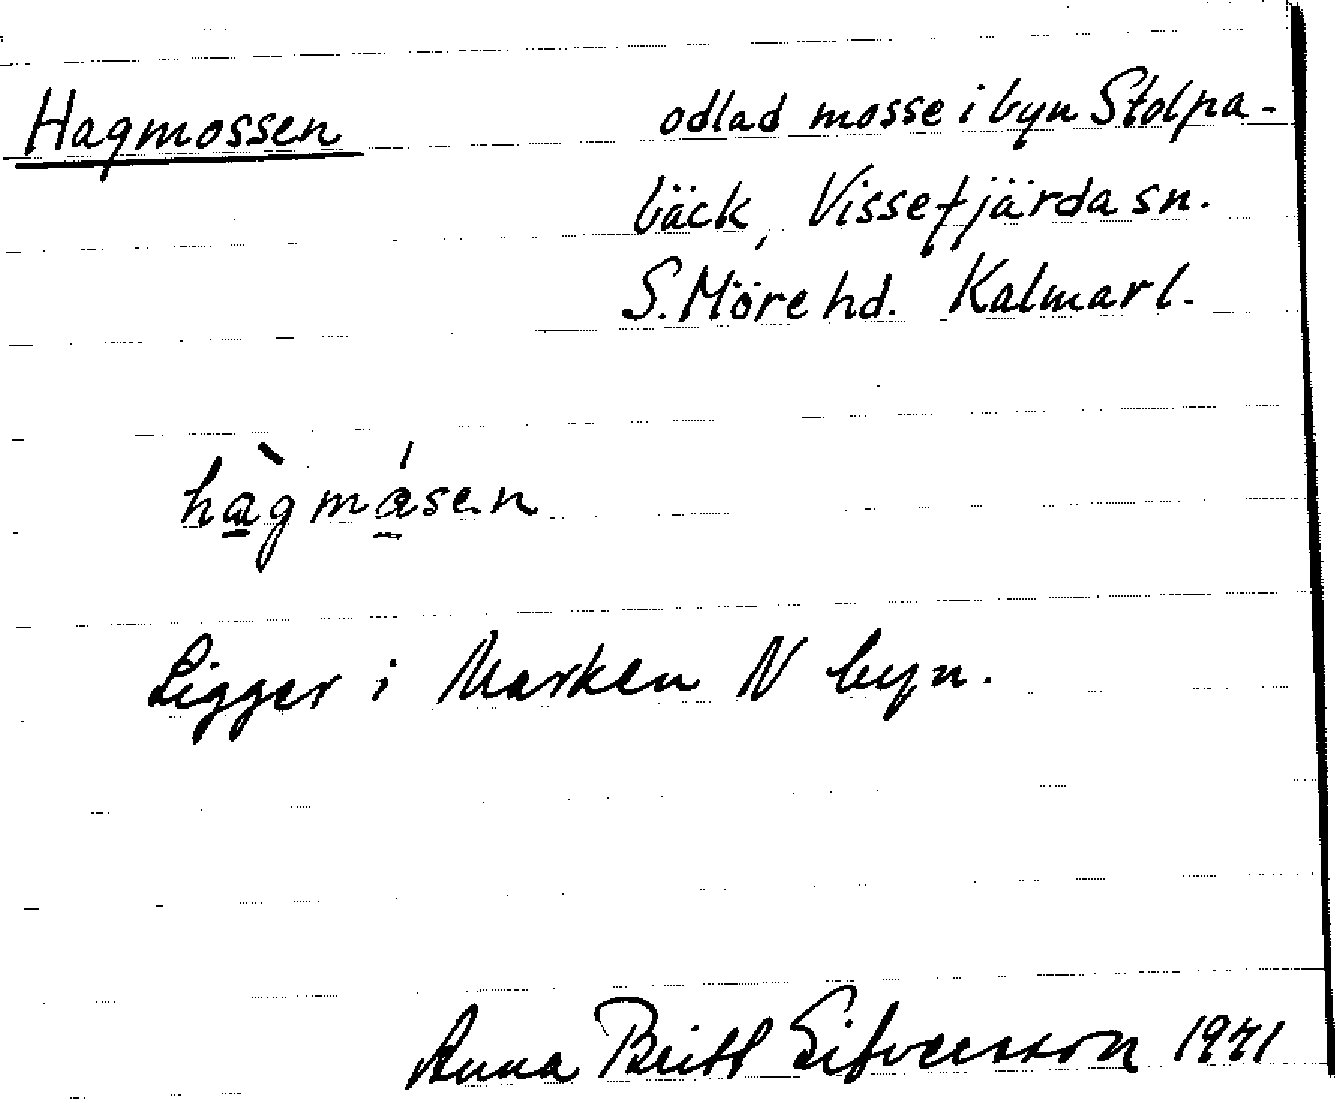 Hagmossen odlad mosse i byn Stolpa-
bäck, Vissefjärda sn.
S. Möre hd. Kalmar l.
hàgmásen
Ligger i Marken N byn.
Anna Britt Sifversson 1941